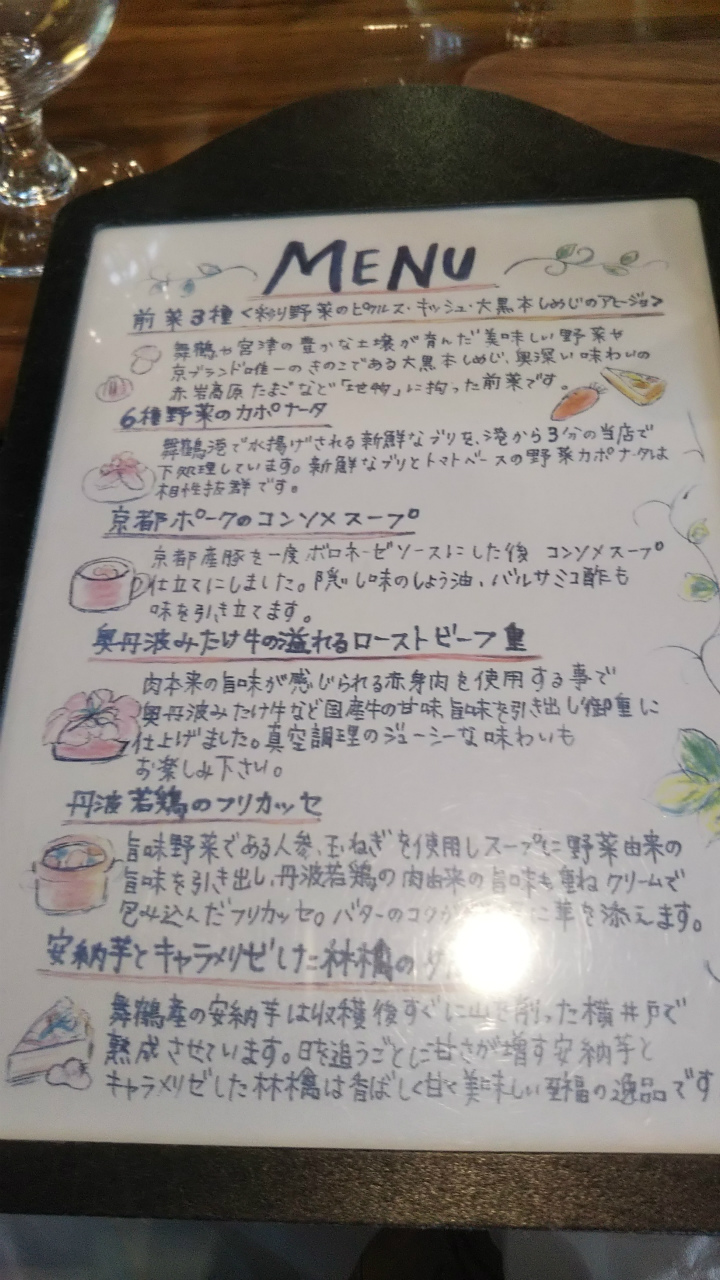 MENU
前菜3種<彩り野菜のピクルス・キッシュ・大黒本しめじのアヒージョ>
舞鶴や宮津の豊かな土壌が育んだ美味しい野菜や
京ブランド唯一のきのこである大黒本しめじ、奥深い味わいの
赤岩高原たまごなど「地物」に拘った前菜です。
6種野菜のカポナータ
舞鶴港で水揚げされる新鮮なブリを、港から3分の当店で
下処理しています。新鮮なブリとトマトベースの野菜カポナータは
相性抜群です。
京都ポークのコンソメスープ
京都産豚を一度ボロネーゼソースにした後 コンソメスープ
仕立てにしました。隠し味のしょう油、バルサミコ酢も
味を引き立てます。
奥丹波みたけ牛の溢れるローストビーフ重
肉本来の旨味が感じられる赤身肉を使用する事で
奥丹波みたけ牛など国産牛の甘味旨味を引き出し御重に
仕上げました。真空調理のジューシーな味わいも
お楽しみ下さい。
丹波若鶏のフリカッセ
旨味野菜である人参、玉ねぎを使用しスープに野菜由来の
旨味を引き出し、丹波若鶏の肉由来の旨味も重ねクリームで
包み込んだフリカッセ。バターのコクが に華を添えます。
安納芋とキャラメリゼした林檎の
舞鶴産の安納芋は収穫後すぐに山を削った横井戸で
熟成させています。日を追うごとに甘さが増す安納芋と
キャラメリゼした林檎は香ばしく甘く美味しい至福の逸品です